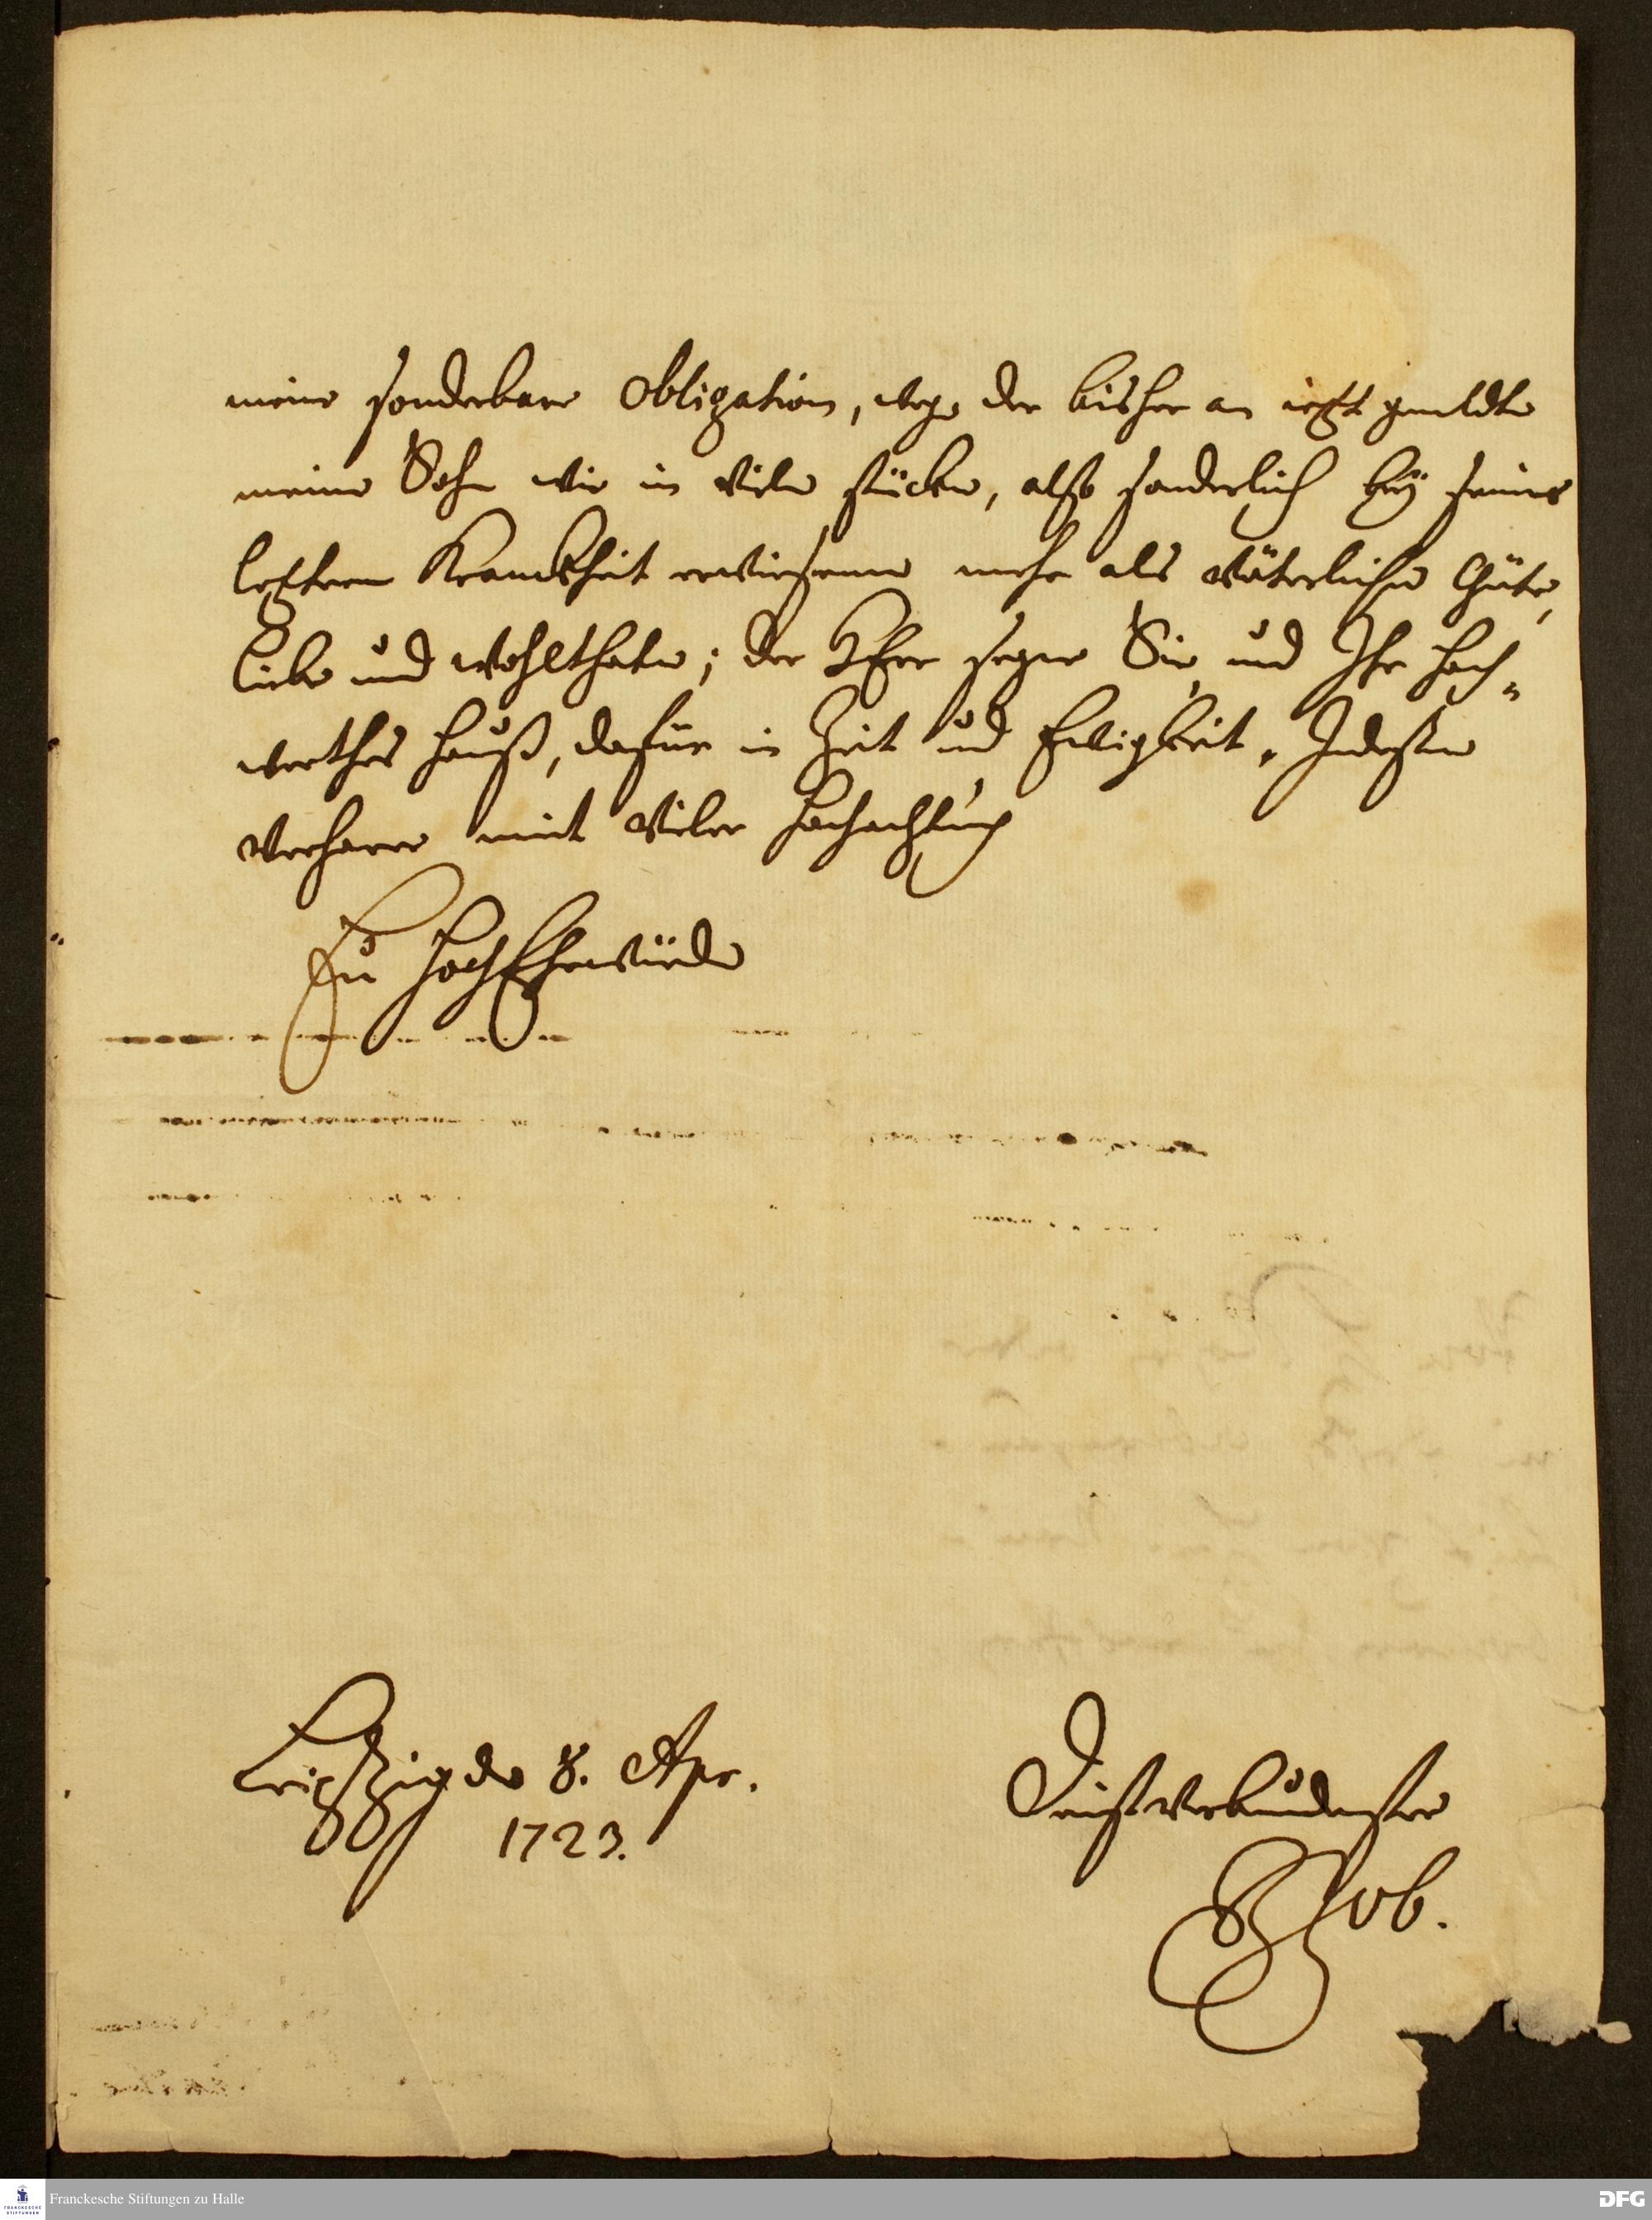 meine sonderbare Obligation, wegen der bisher an ietzt gemeldten
meinen Sohn wie in vielen stücken, also sonderlich bey seiner
letztern Kranckheit erwiesenen mehr als väterlichen Güte,
Liebe und wohlthaten; der HErr segne Sie, und Ihr hoch-
werthes Hauß, dafür in Zeit und Ewigkeit. Indeßen
verharre mit vieler Hochachtung
Eu HochEhrwürden
Leipzig den 8. Apr.
1723.
Dienstverbundenster
Job.
Franckesche Stiftungen zu Halle
FRANCKESCHE
STIFTUNGEN
DFG